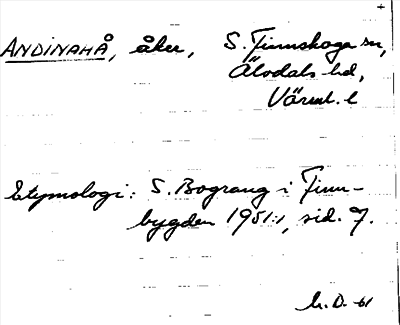 ANDINAHÅ, åker, S. Finnskoga sn,
Älvdals hd,
Värml. l
Etymologi: S. Bograng i Finn-
bygden 1951:1, sid. 7.
h.D. -61